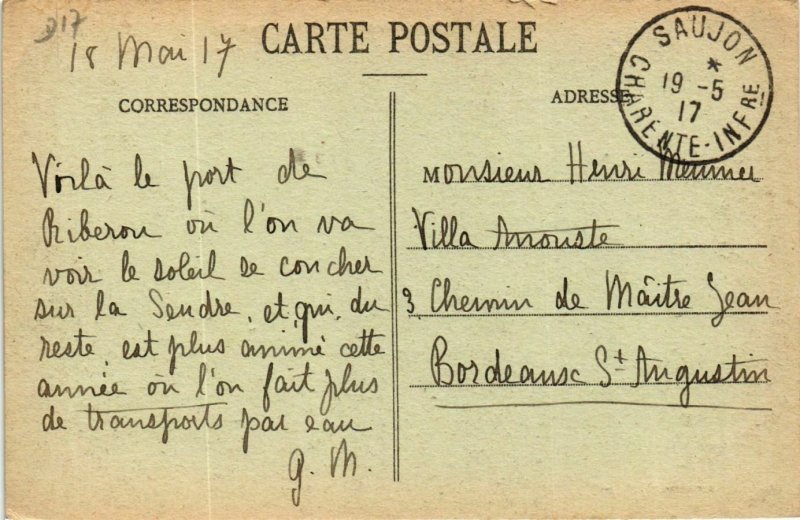 D17
18 Mai 17
CARTE POSTALE
CORRESPONDANCE
ADRESSE
SAUJON
19 - 5
17
CHARENTE-INFRE
Voilà le port de
Riberou où l'on va
voir le soleil se coucher
sur la Seudre, et qui, du
reste, est plus animé cette
année où l'on fait plus
de transports par eau
G. M.
Monsieur Henri Meunier
Villa Anouste
3, Chemin de Maître Jean
Bordeaux St Augustin